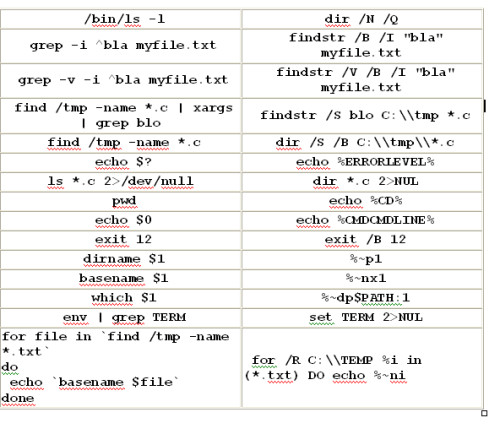 /bin/ls -l
dir /N /Q
grep -i ^bla myfile.txt
findstr /B /I "bla"
myfile.txt
grep -v -i ^bla myfile.txt
findstr /V /B /I "bla"
myfile.txt
find /tmp -name *.c | xargs
| grep blo
findstr /S blo C:\\tmp *.c
find /tmp -name *.c
dir /S /B C:\\tmp\\*.c
echo $?
echo %ERRORLEVEL%
ls *.c 2>/dev/null
dir *.c 2>NUL
pwd
echo %CD%
echo $0
echo %CMDCMDLINE%
exit 12
exit /B 12
dirname $1
%~p1
basename $1
%~nx1
which $1
%~dp$PATH:1
env | grep TERM
set TERM 2>NUL
for file in `find /tmp -name
*.txt`
do
echo `basename $file`
done
for /R C:\\TEMP %i in
(*.txt) DO echo %~ni